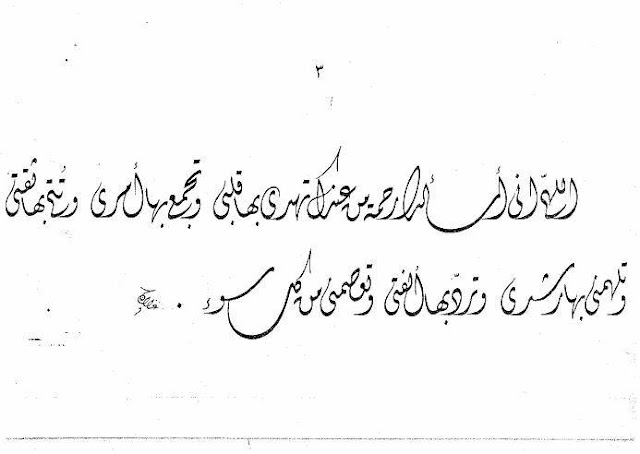 ٣
اللهم انى أسألك رحمة من عندك تهدى بها قلبى وتجمع بها أمرى بها ثقتى
وتلهمنى بها رشدى وتردّ بها ألفتى وتعصمنى من كل سوء .